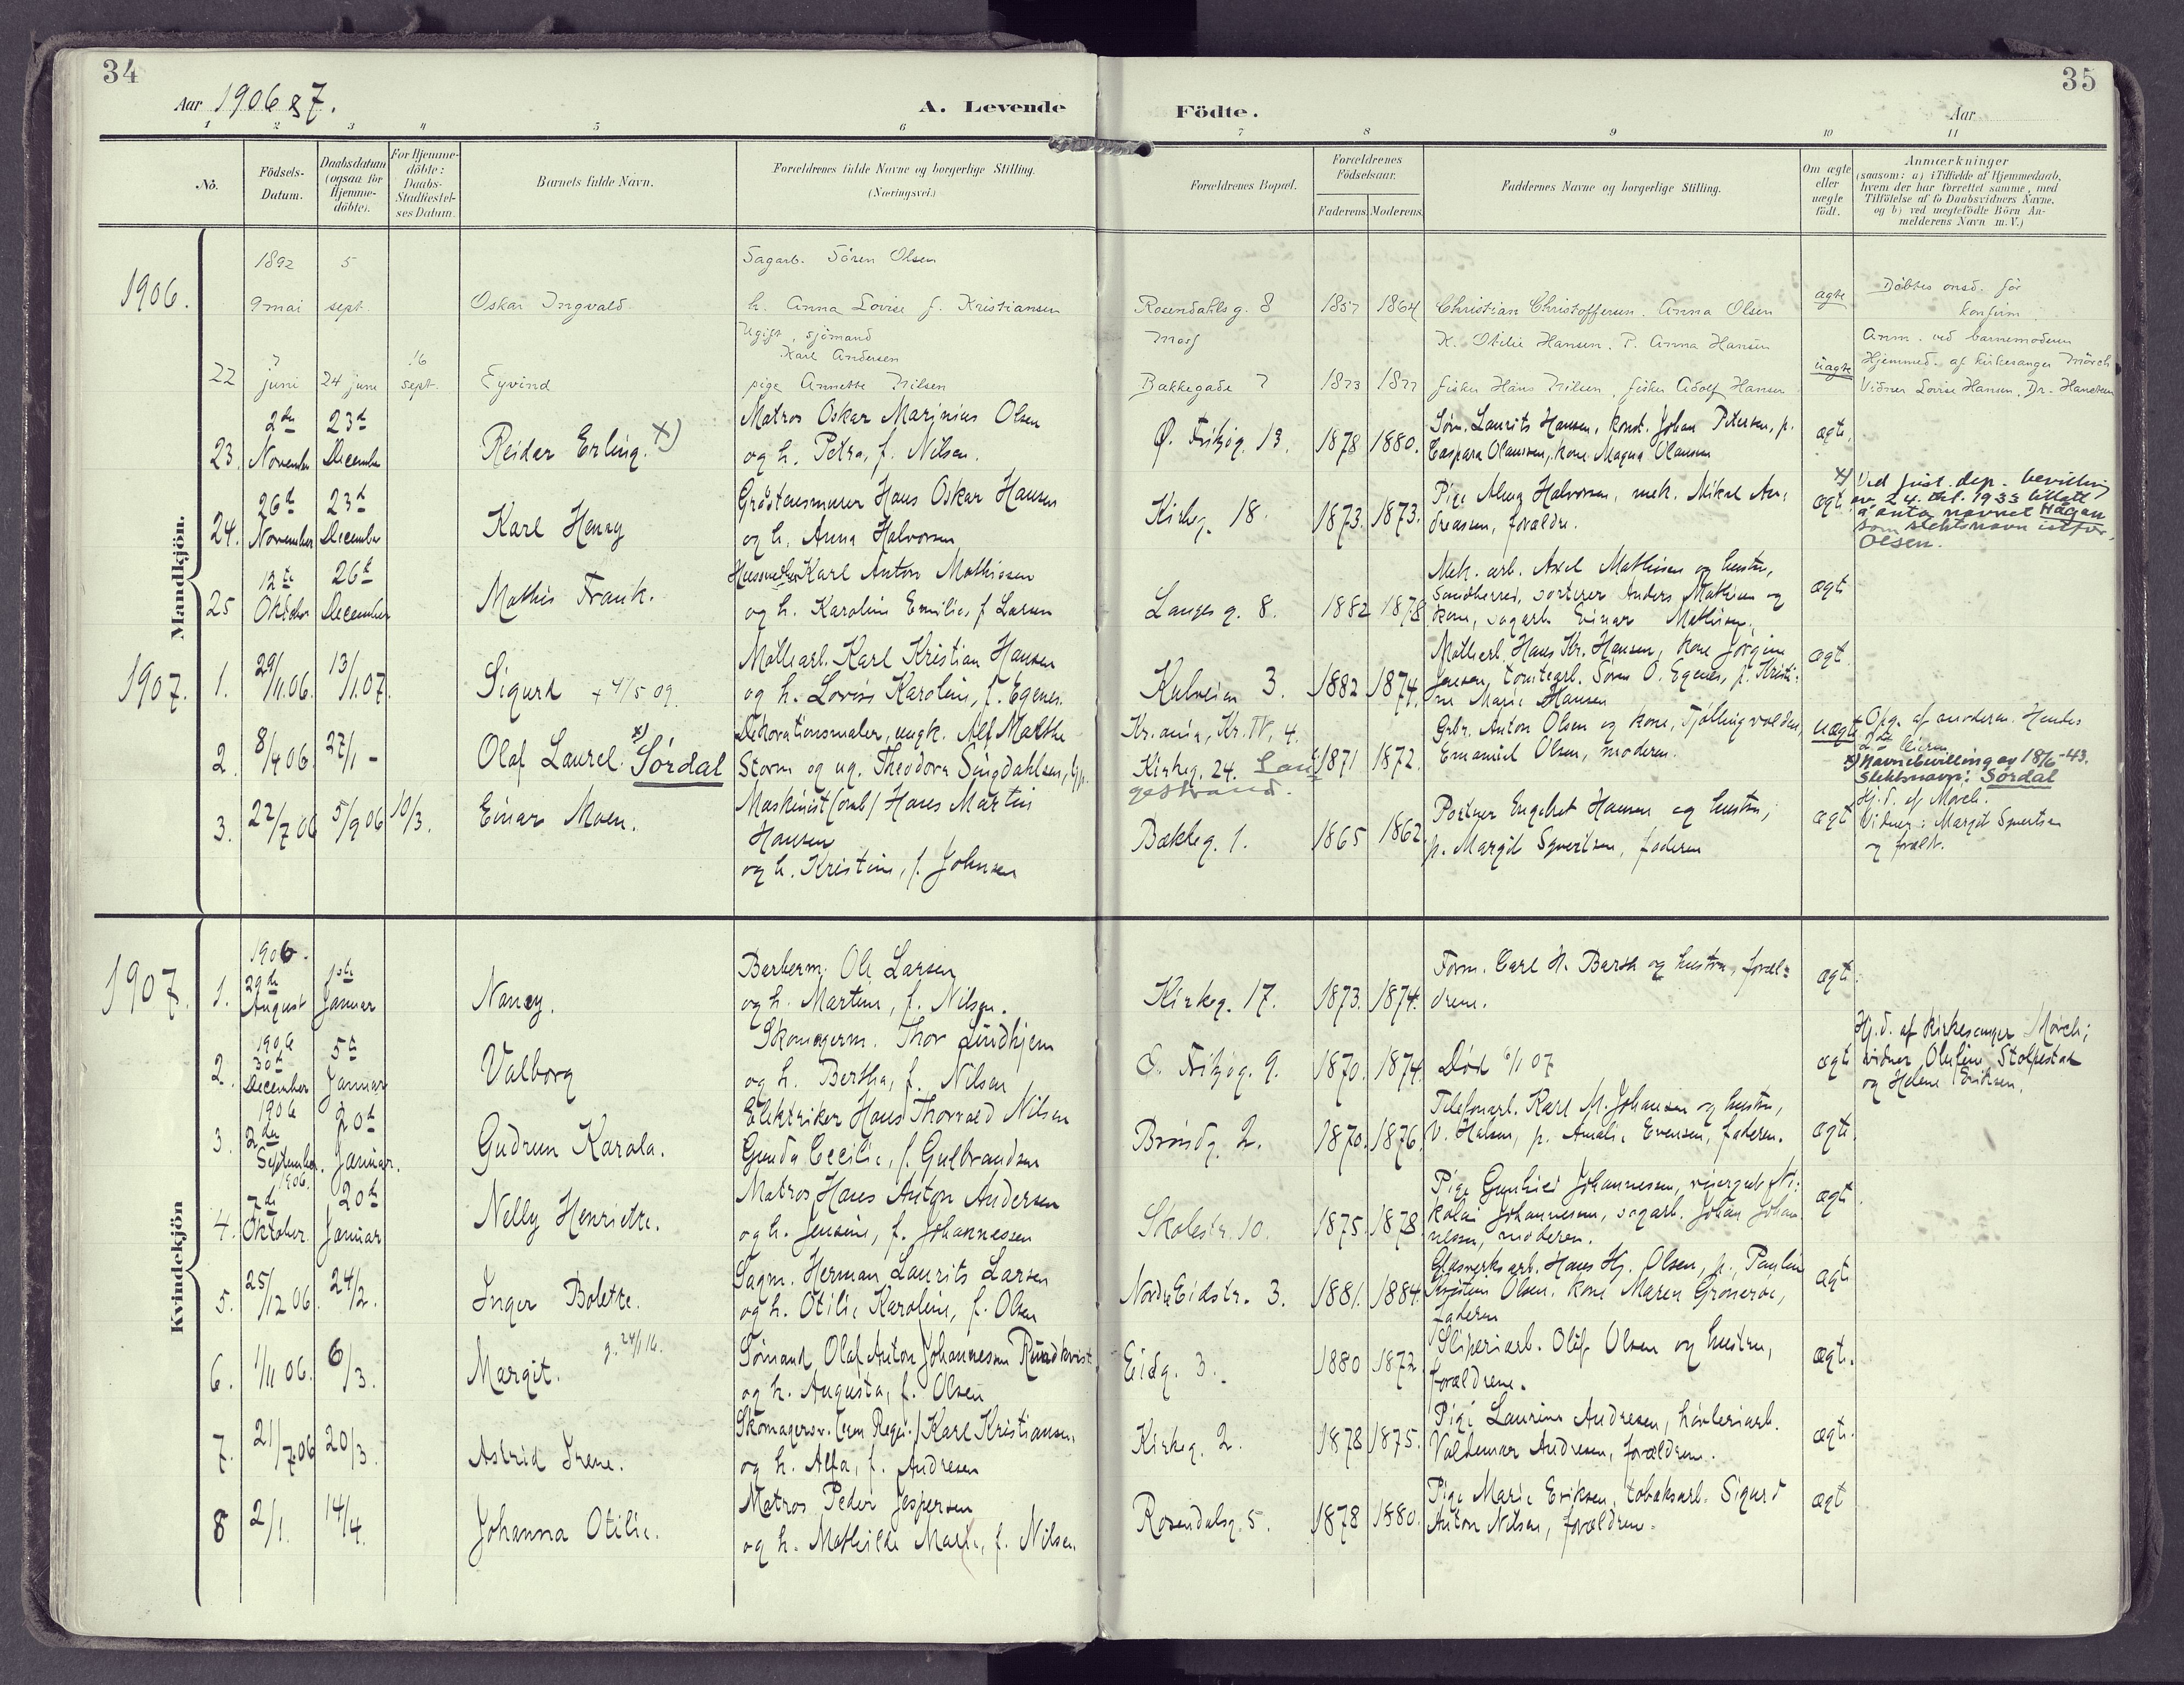 34
Aar 1906 & 7.
A. Levende
Födte.
Aar
35
1 2 3 4 5 6 7 8 9 10 11
No.
Födsels-
Datum.
Daabsdatum
(ogsaa for
Hjemme-
döbte).
For Hjemme-
döbte:
Daabs-
Stadfæstel-
ses Datum.
Barnets fulde Navn.
Forældrenes fulde Navne og borgerlige Stilling.
(Næringsvei.)
Forældrenes Bopæl.
Forældrenes
Födselsaar.
Faderens. Moderens.
Faddernes Navne og borgerlige Stilling.
Om ægte
eller
uægte
födt.
Anmærkninger
(saasom: a) i Tilfælde af Hjemmedaab,
hvem der har forrettet samme, med
Tilföielse af to Daabsvidners Navne,
og b) ved uægtefödte Börn An-
melderens Navn m. V.)
Mandkjön.
1906.
1892 5 Sagarb. Sören Olsen
9 mai sept. Oskar Ingvald h. Anna Lovise f. Kristiansen Rosendahls g. 8 1857 1864 Christian Christoffersen. Anna Olsen ægte Döbtes onsd. før
konfirm.
Ugift, sjömand
Karl Andersen
K. Otilie Hansen. P. Anna Hansen
Anm. ved barnemoderen
22 7 juni 24 june 16 sept. Eyvind pige Annette Nilsen Bakkegade 7 1873 1877 fisker Hans Nilsen, fisker Adolf Hansen uægte Hjemmed. af kirkesanger Mörch
Vidner Lovise Hansen, Dr. Handsen
2den 23d Matros Oskar Marinius Olsen Söm. Laurits Hansen, konst. Johan Petersen, p.
23. November December Reidar Erling. x) og h. Petra, f. Nilsen. Ø. Fritzög. 13. 1878 1880. Caspara Olaussen, kone Magna Olaussen ægte.
26d 23d Gråstensmurer Hans Oskar Hansen Pige Alma Halvorsen, mek. Mikal An-
24. November December Karl Henry og h. Anna Halvorsen Kirkeg. 18. 1873. 1873. dreassen, forældre. ægt.
x) Ved just. dep. bevilling
av 24. okt. 1933 tillatt
å anta navnet Hagan
som slektsnavn istfor
Olsen.
12te 26d Karl Anton Mathissen Mek. arb. Axel Mathisen og hustru,
25 Oktober December Mathis Frank. og h. Karoline Emilie, f Larsen Langes g. 8. 1882 1878 sorterer Anders Mathisen og
kone, sagarb. Einar Mathisen. ægt
1907.
1. 29/11.06. 13/1.07. Sigurd + 4/5 09. Mölliarb. Karl Kristian Hansen
og h. Lovise Karoline, f. Egenes. 3. 1882 1874. Mölliarb. Hans Kr. Hansen, kone Jörgine
Jensen, tomtearb. Sören O. Egenes, p. Kristi-
ne Marie Hansen ægt.
2. 8/4 06. 27/1 - Olaf Laurel. x) Sørdal Dekorationsmaler, ungk. Alf Malthe
Storm og ug. Theodora Singdahlsen, Kr.ania, Kr. IV, 4.
Kirkeg. 24. Lan-
gestrand. 1871 1872. Grbr. Anton Olsen og kone, Tjöllingvolden,
Emanuel Olsen, moderen. uægte
Opg. af moderen. Hendes
2det leierm.
x) Navnebevilling av 18/6-43.
Slektsnavn: Sørdal
3. 22/7 06 5/9 06 10/3. Einar Moen. Maskinist (omb) Hans Martin
Hansen
og h. Kristine, f. Johnsen Bakkeg. 1. 1865 1862. Portner Engebret Hansen og hustru,
p. Margit Syvertsen, faderen ægt
Hj. d. af Mørch.
Vidner: Margit Syvertsen
og forældr.
Kvindekjön
1907.
1906.
1. 29de August 1ste Januar Nancy. Barberm. Ole Larsen
og h. Martine, f. Nilsen. Kirkeg. 17. 1873. 1874. Form. Carl H. Barth og hustru, foræl-
drene. ægt.
1906
2. 30d December 5d Januar Valborg Skomagerm. Thor Lindhjem
og h. Bertha, f. Nilsen Ø. Fritzög. 9. 1870. 1874. Död 6/1 07 ægt
Hj. d. af kirkesanger Mørch;
vidner, Oluline Stolpestad
og Helene Eriksen.
1906
3. 2den September. 20d Januar. Gudrun Karala. Elektriker Hans Thorvald Nilsen
Gunda Cecilie, f. Gulbrandsen Brøndg. 2. 1870. 1876. Telefonarb. Karl M. Johansen og hustru,
V. Halsen, p. Amalie Evensen, faderen. ægte.
1906.
4. 7de Oktober. 20de Januar Nelly Henriette. Matros Hans Anton Andersen
og h. Jensine, f. Johannessen Skolestr. 10. 1875. 1878. Pige Gunhild Johannessen, visergut Ni-
kolai Johannesen, sagarb. Johan Johan-
nesen, moderen. ægt.
5. 25/12 06. 24/2. Inger Bolette. Sagm. Herman Laurits Larsen
og h. Otilie Karoline, f. Olsen Nordre Eidstr. 3. 1881. 1884. Glasverksarb. Hans Hj. Olsen, p. Pauline
Kristine Olsen, kone Maren Grönerøe,
faderen ægt.
6. 1/11 06. 6/3. Margit. g. 24/1 16. Sömand Olaf Anton Johannesen Rundkvist
og h. Augusta, f. Olsen Eidg. 3. 1880 1872 Sliperiarb. Oluf Olsen og hustru,
forældrene. ægte.
7. 21/7.06 20/3. Astrid Irene. Skomagersv. Karl Kristiansen,
og h. Alfa, f. Andresen Kirkeg. 2. 1878 1875. Pige Laurine Andresen, høvleriarb.
Valdemar Andresen, forældrene. ægte.
8 2/1. 14/4. Johanna Otilie. Matros Peder Jespersen
og h. Mathilde Marie, f. Nilsen. Rosendalsg. 5. 1878 1880. Pige Marie Eriksen, tobaksarb. Sigurd
Anton Nilsen, forældrene. ægt